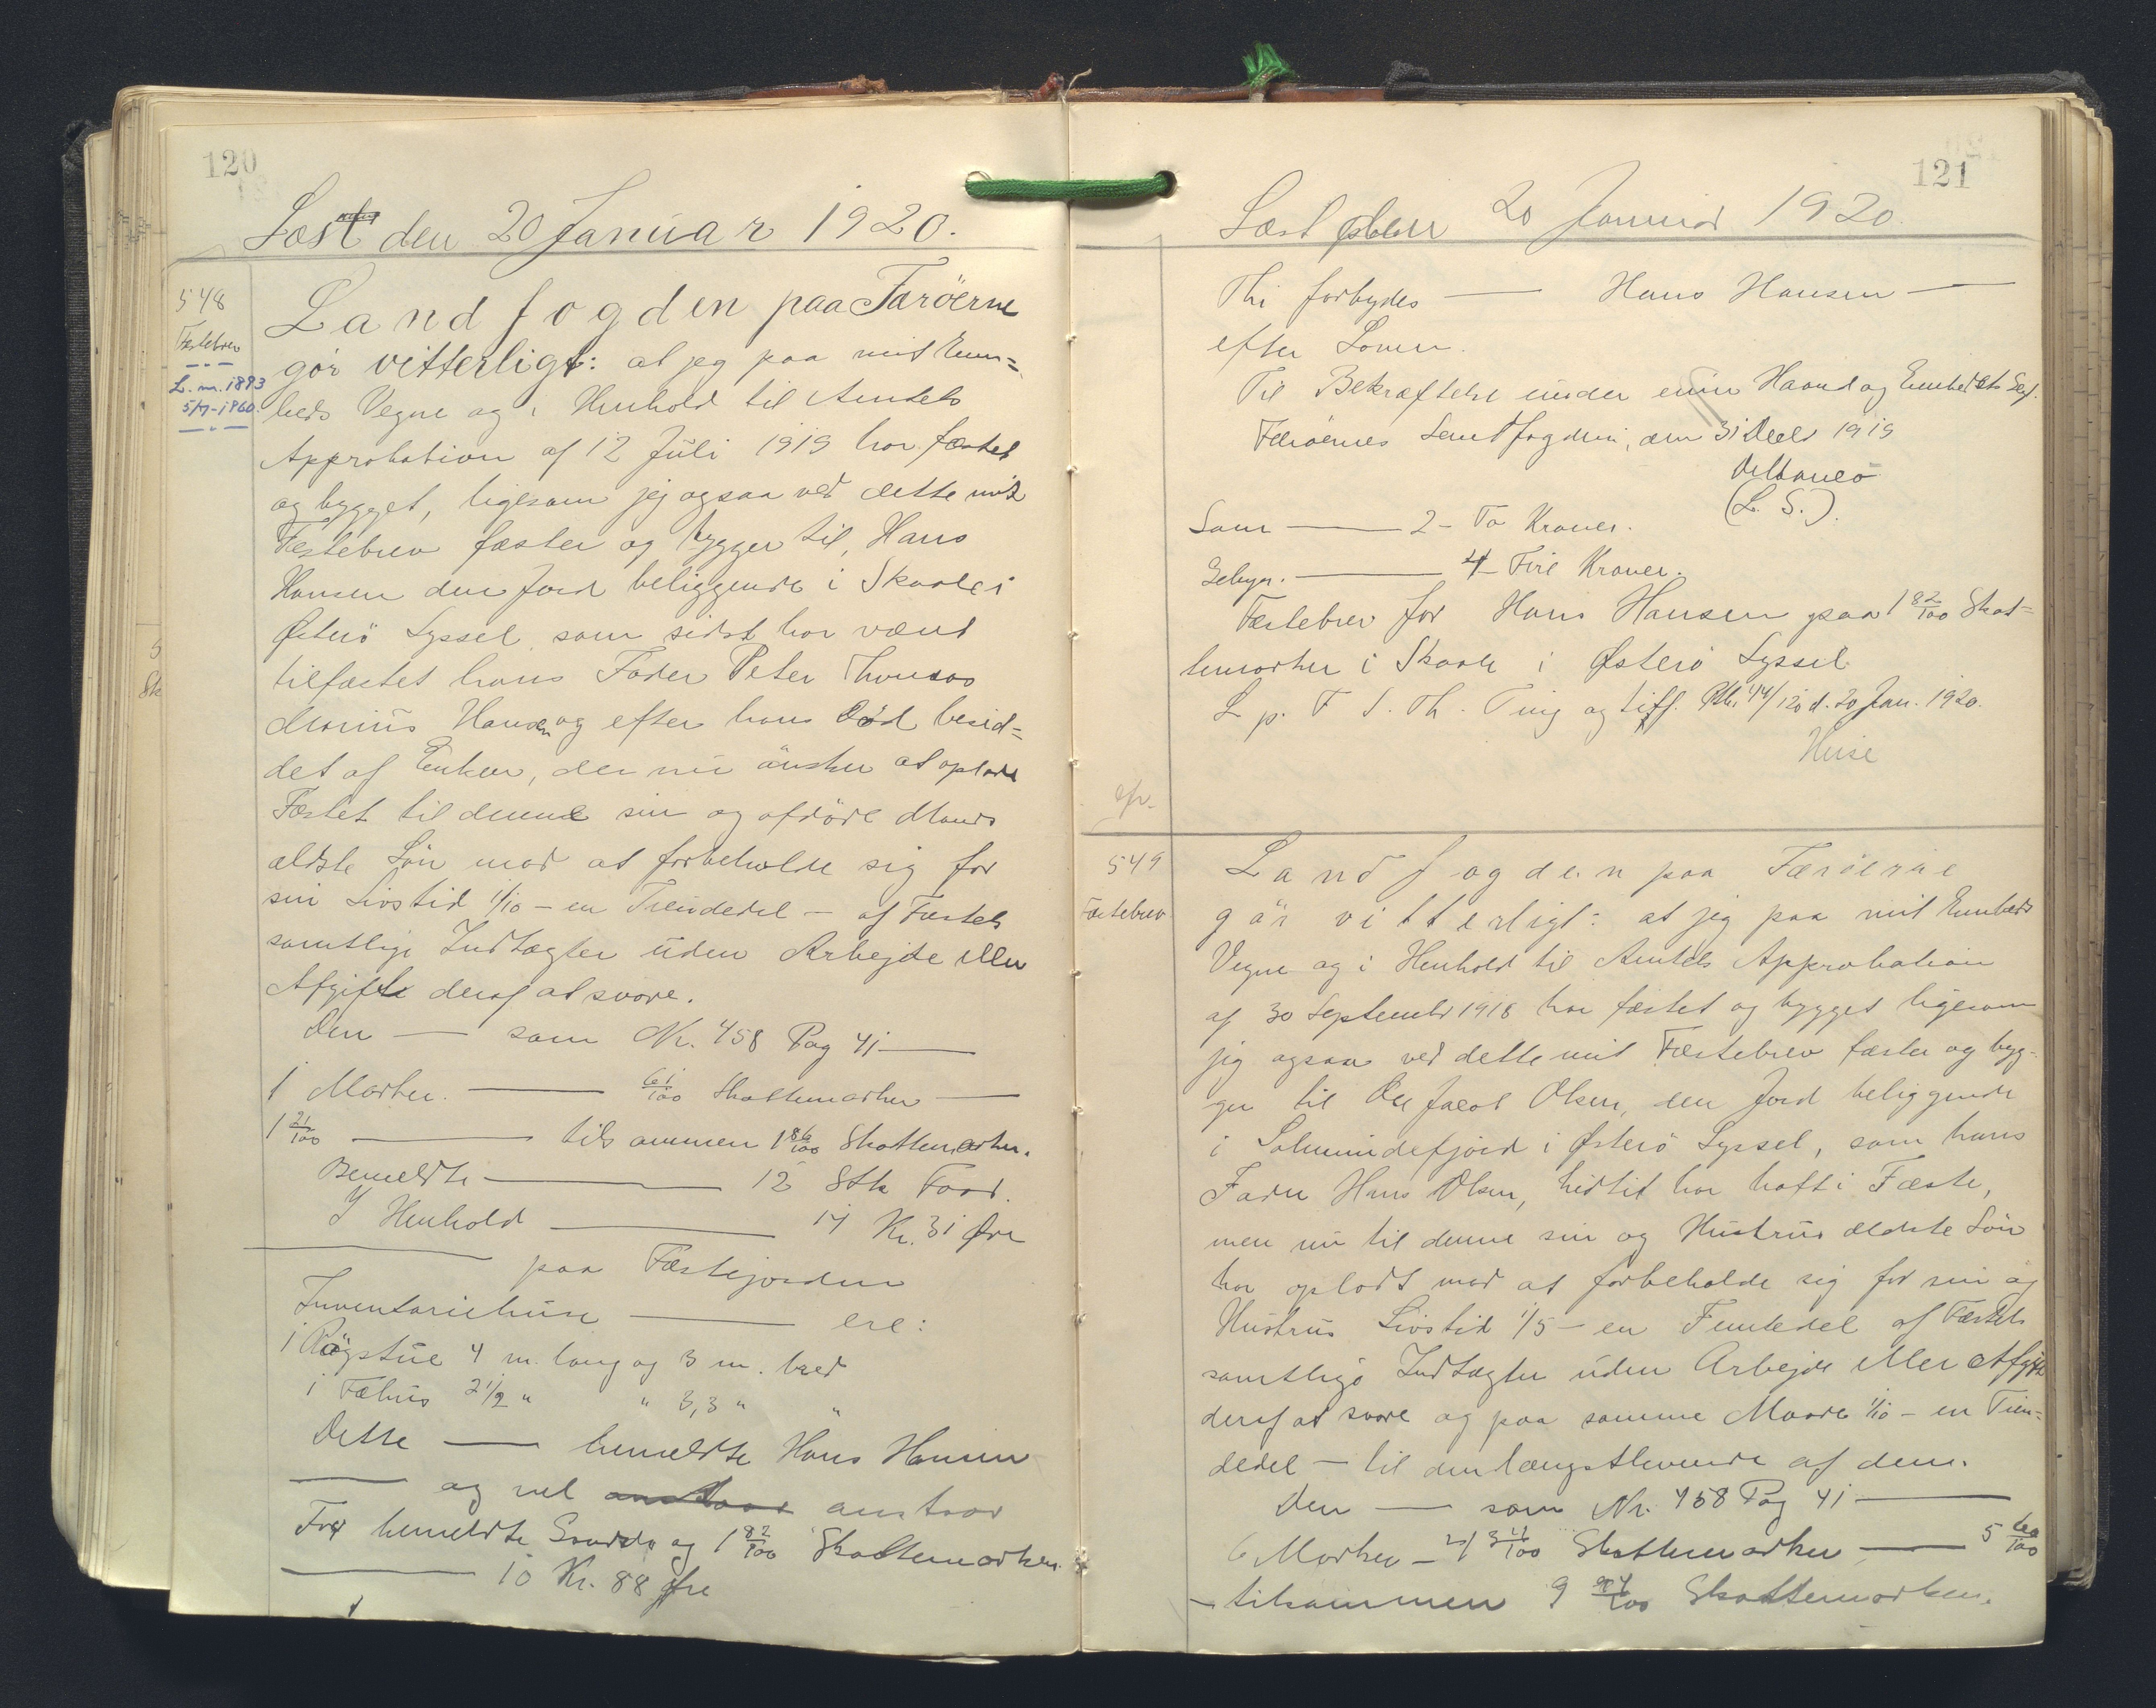 120
Læst den 20 Januar 1920.
548
Fæstebrev
L. nr. 1893
5/7-1960.
Landfogden paa Færöerne
gör vitterligt: at jeg paa mit Em=
beds Vegne og i Henhold til Amtets
Approbation af 12 Juli 1919 har fæstet
og bygget, ligesom jeg ogsaa ved dette mit
Fæstebrev fæster og bygger til, Hans
Hansen den Jord beliggende i Skaale i
Østerö Syssel som sidst har været
tilfæstet hans Fader Peter
Marius Hansen og efter hans Död besid=
det af Enken, der nu önsker at oplade
Fæstet til denne sin og afdöde Mands
ældste Sön mod at forbeholde sig for
sin Livstid 1/10 - en Tiendedel - af Fæstets
samtlige Indtægter uden Arbejde eller
Afgift deraf at svare.
Den — som Nr. 458 Pag 41 —
1 Marker. — 61/100 Skattemarker —
1 21/100 — tilsammen 1 82/100 Skattemarker.
Bemeldte — 12 Stk Faar.
I Henhold — 14 Kr. 31 Øre
— paa Fæstejorden
Inventariehuse — ere:
1 Rögstue 4 m. lang og 3 m. bred
1 Fæhus 2 1/2 " " 3,3 " "
Dette — bemeldte Hans Hansen
— og vel anstaar
For bemeldte Grunds og 1 82/100 Skattemarker
— 10 Kr. 88 Øre
121
Læst den 20 Januar 1920.
Thi forbydes — Hans Hansen —
efter Loven.
Til Bekræftelse under min Haand og Embedets Segl.
Færöernes Landfogderi, den 31 Decbr 1919
(L. S.).
Som — 2 - To Kroner.
Gebyr. — 4 - Fire Kroner.
Fæstebrev for Hans Hansen paa 1 82/100 Skat=
temarker i Skaale i Østerö Syssel
L. p. F S. Th. Ting og tilf. Prot. 44/120 d. 20 Jan. 1920.
549
Fæstebrev
Landfogden paa Færöerne
gör vitterligt: at jeg paa mit Embeds
Vegne og i Henhold til Amtets Approbation
af 30 September 1918 har fæstet og bygget ligesom
jeg ogsaa ved dette mit Fæstebrev fæster og byg=
ger til Ole Jacob Olsen, den Jord beliggende
i Solmundefjord i Østerö Syssel, som hans
Fader Hans Olsen, hidtil har haft i Fæste,
men nu til denne sin og Hustrus ældste Sön
har opladt mod at forbeholde sig for sin og
Hustrus Livstid 1/5 - en Femtedel af Fæstets
samtlige Indtægter uden Arbejde eller Afgift
deraf at svare og paa samme Maade 1/10 - en Tien=
dedel - til den længstlevende af dem.
Den — som Nr. 458 Pag 41 —
6 Marker - Skattemarker — 5 60/100
- tilsammen 9 94/100 Skattemarker.